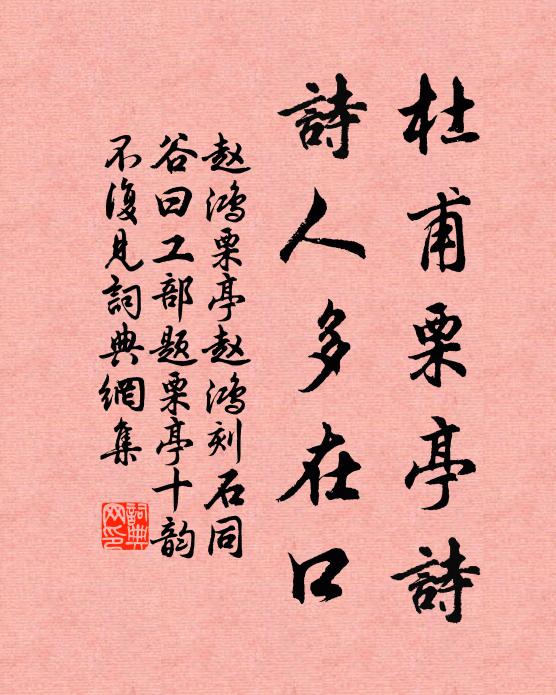 杜甫栗亭詩
詩人多在口
赵鴻栗亭赵鴻刻石同
谷曰工部题栗亭十韵
不復見詞典網集
詞典
网印